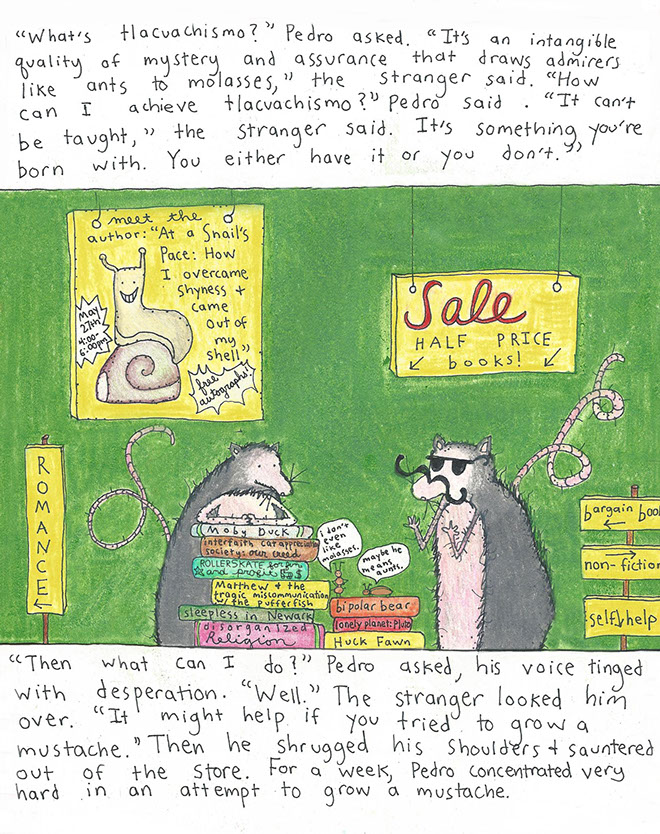 "What's tlacuachismo?" Pedro asked. "It's an intangible
quality of mystery and assurance that draws admirers
like ants to molasses," the stranger said. "How
can I achieve tlacuachismo?" Pedro said. "It can't
be taught," the stranger said. It's something you're
born with. You either have it or you don't."
meet the
author: "At a Snail's
Pace: How
I overcame
shyness +
came
out of
my
shell"
May
27th
4:00-
6:00pm
free
autographs!
Sale
HALF PRICE
books!
ROMANCE
Moby Duck
interfaith cat appreciation
society: our creed
ROLLERSKATE for fun
and profit
Matthew & the
tragic miscommunication
w/ the pufferfish
sleepless in Newark
disorganized
Religion
I don't
even
like
molasses.
maybe he
means
aunts.
bipolar bear
lonely planet: Pluto
Huck Fawn
bargain boo
non-fiction
self help
"Then what can I do?" Pedro asked, his voice tinged
with desperation. "Well." The stranger looked him
over. "It might help if you tried to grow a
mustache." Then he shrugged his shoulders + sauntered
out of the store. For a week, Pedro concentrated very
hard in an attempt to grow a mustache.